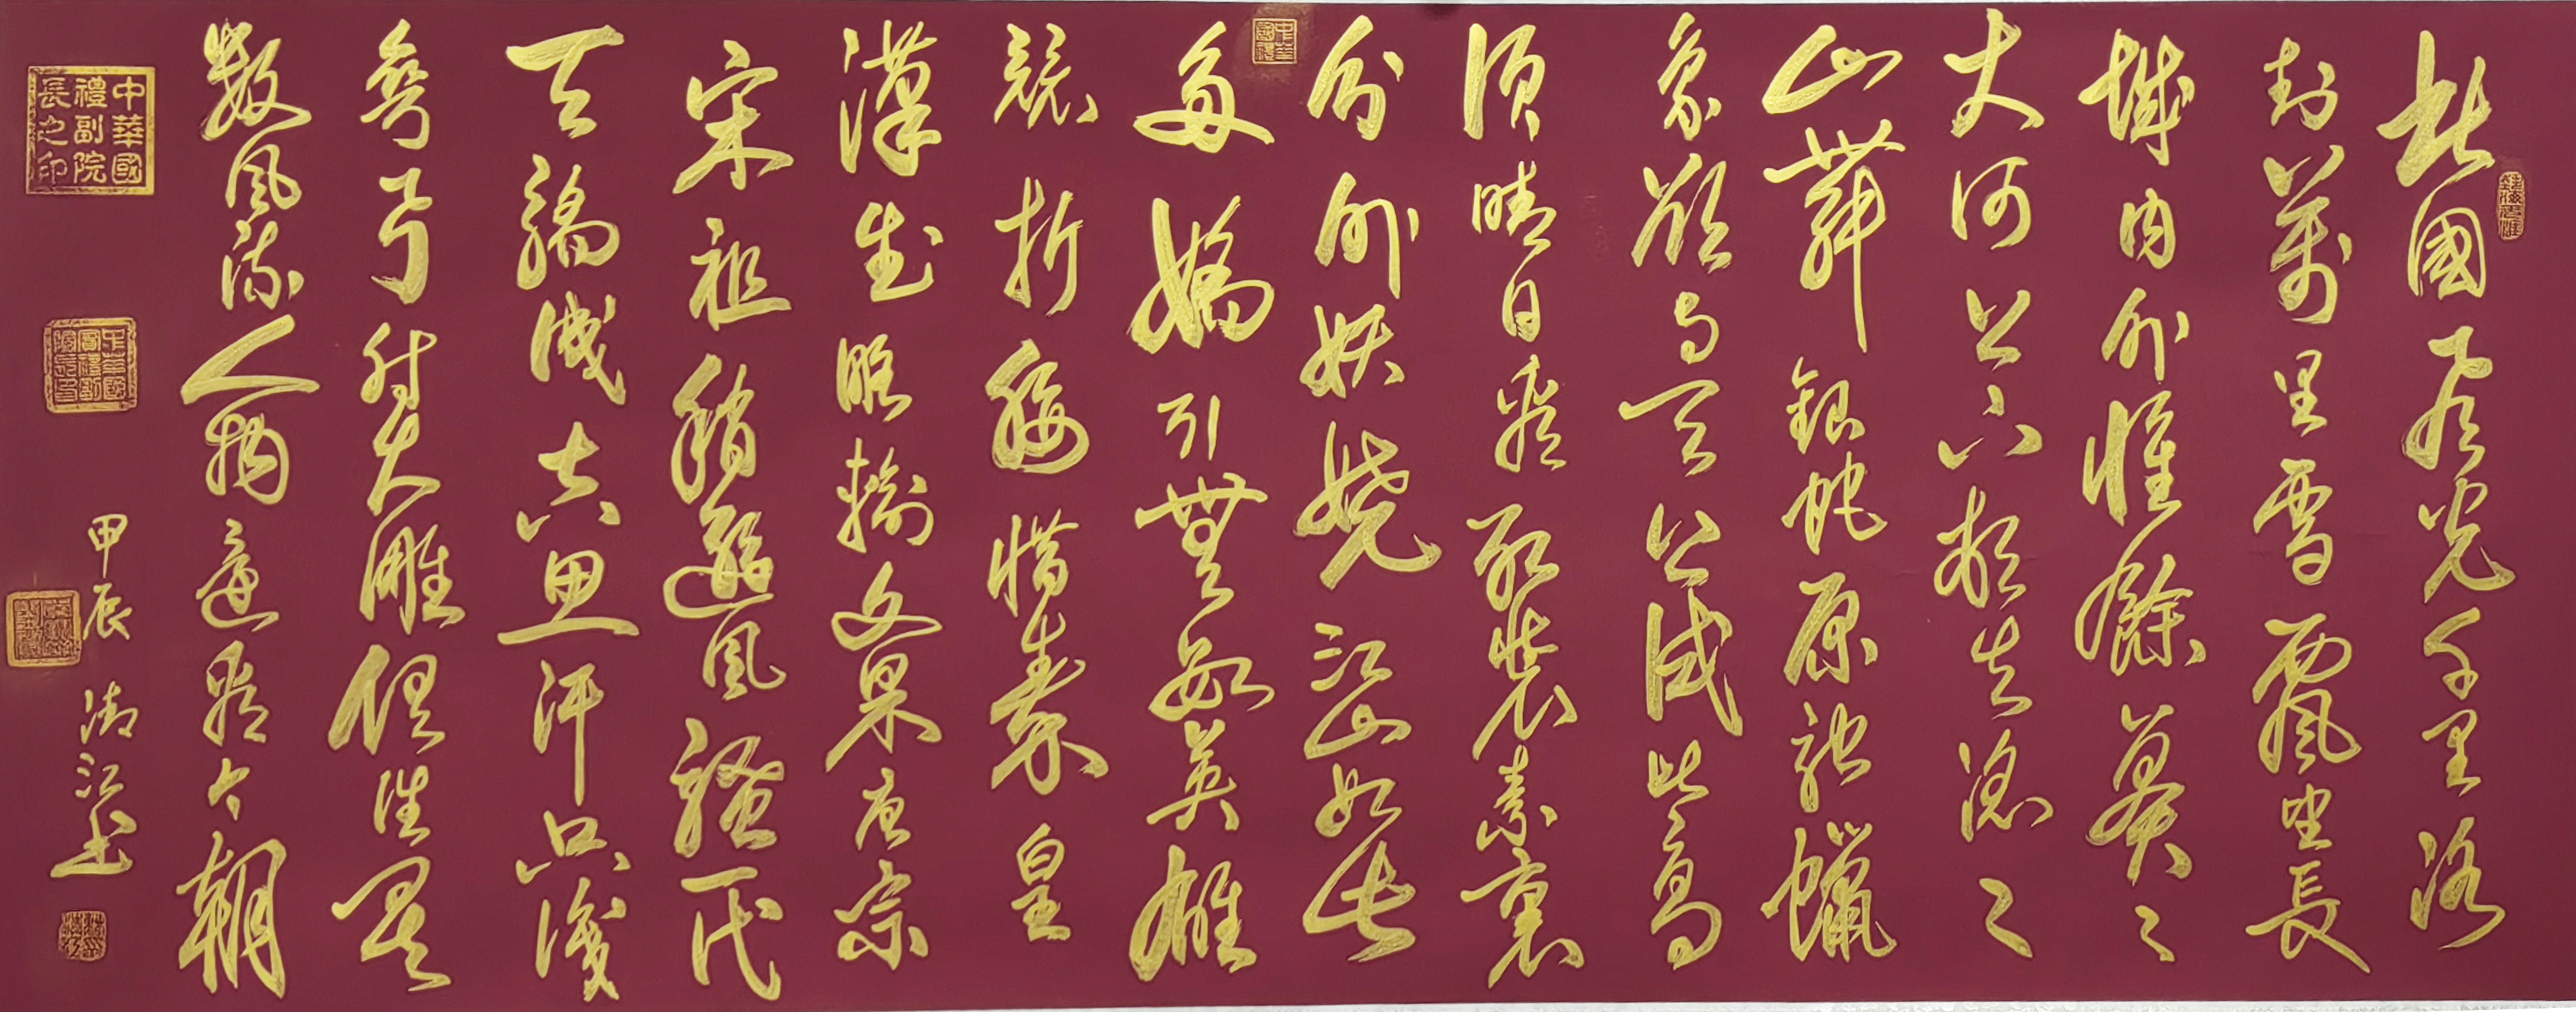 北國風光千里冰
封萬里雪飄望長
城内外惟餘莽々
大河上下頓失滔々
山舞銀蛇原馳蠟
象欲與天公試比高
須晴日看紅裝素裹
分外妖嬈江山如此
多嬌引無數英雄
競折腰惜秦皇
漢武略輸文采唐宗
宋祖稍遜風騷一代
天驕成吉思汗只識
彎弓射大雕俱往矣
數風流人物還看今朝
甲辰 清江書
中華國禮副院長之印